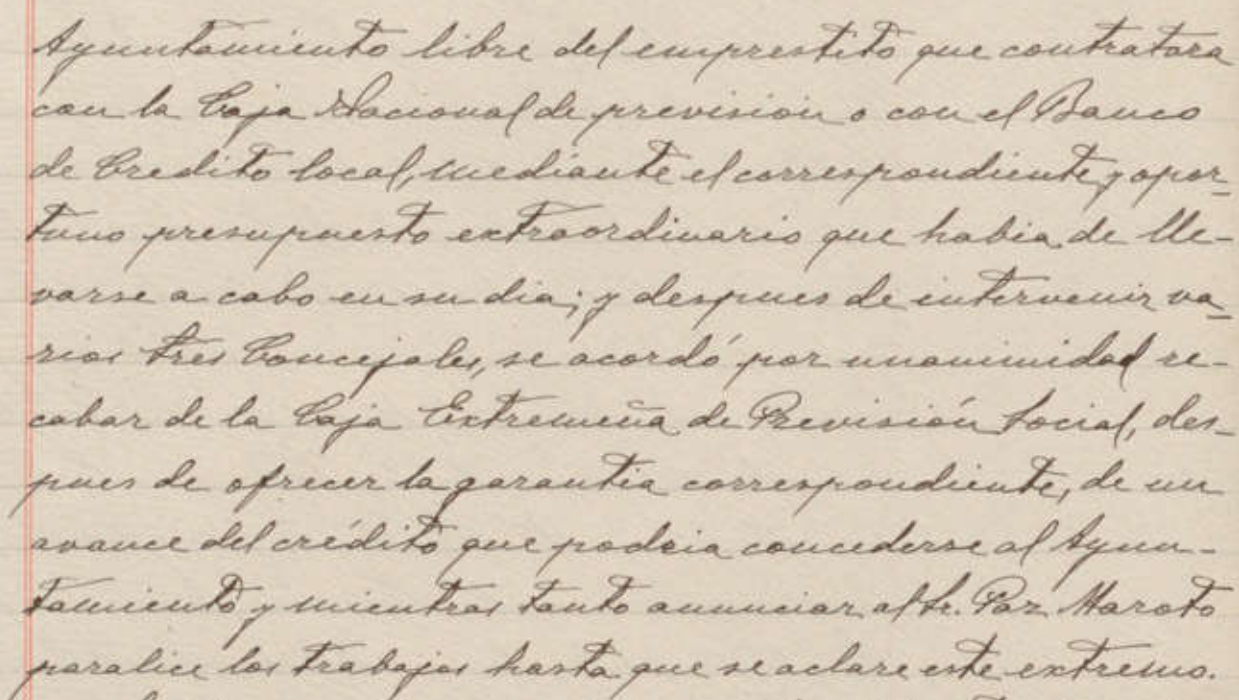 Ayuntamiento libre del emprestito que contratara
con la Caja Nacional de prevision o con el Banco
de Credito local, mediante el correspondiente y opor-
tuno presupuesto extraordinario que habia de lle-
varse a cabo en su dia; y despues de intervenir va-
rios tres Concejales, se acordó por unanimidad re-
cabar de la Caja Extremeña de Previsión Social, des-
pues de ofrecer la garantia correspondiente, de un
avance del crédito que podria concederse al Ayun-
tamiento y mientras tanto anunciar al Sr. Paz Maroto
paralice los trabajos hasta que se aclare este extremo.